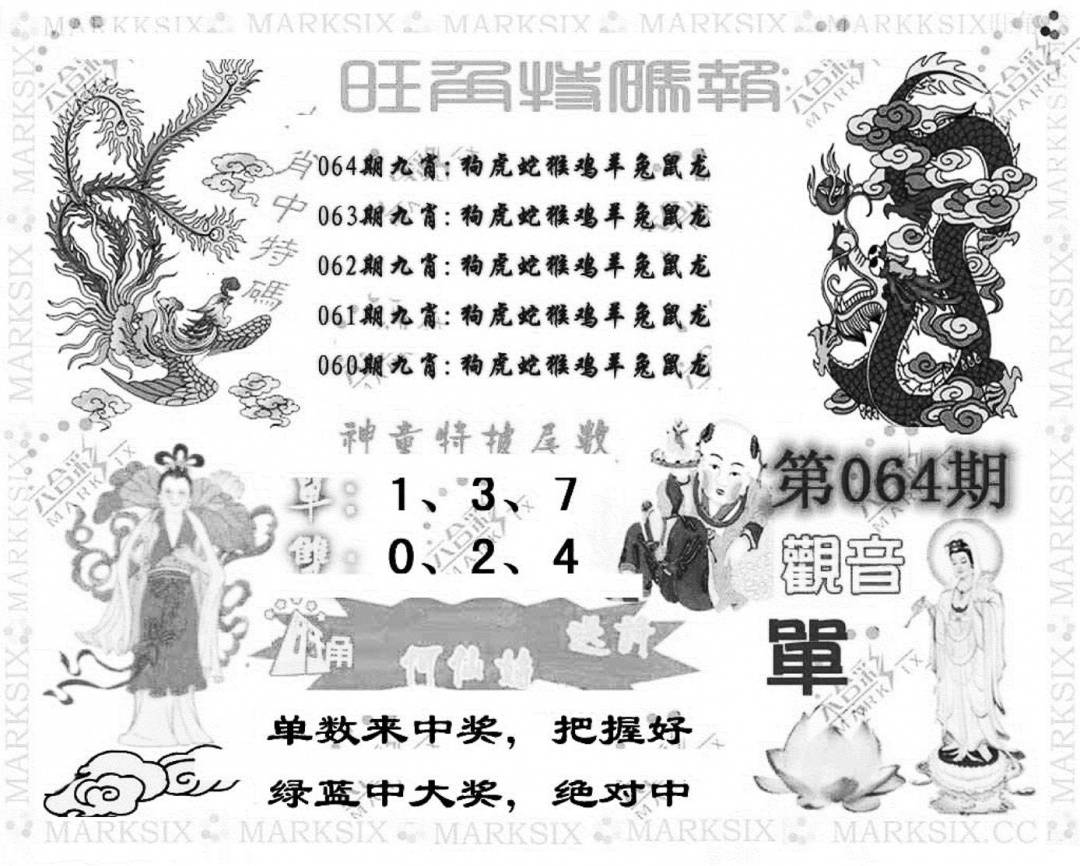 MARKSIX MARKSIX MARKSIX MARKKSIX
旺角特碼報
肖中特碼
064期九肖:狗虎蛇猴鸡羊兔鼠龙
063期九肖:狗虎蛇猴鸡羊兔鼠龙
062期九肖:狗虎蛇猴鸡羊兔鼠龙
061期九肖:狗虎蛇猴鸡羊兔鼠龙
060期九肖:狗虎蛇猴鸡羊兔鼠龙
神童特披尾數
單: 1、3、7
雙: 0、2、4
第064期
觀音
單
何仙姑
单数来中奖，把握好
绿蓝中大奖，绝对中
MARKSIX MARKSIX MARKSIX MARKSIX MARKSIX.CC